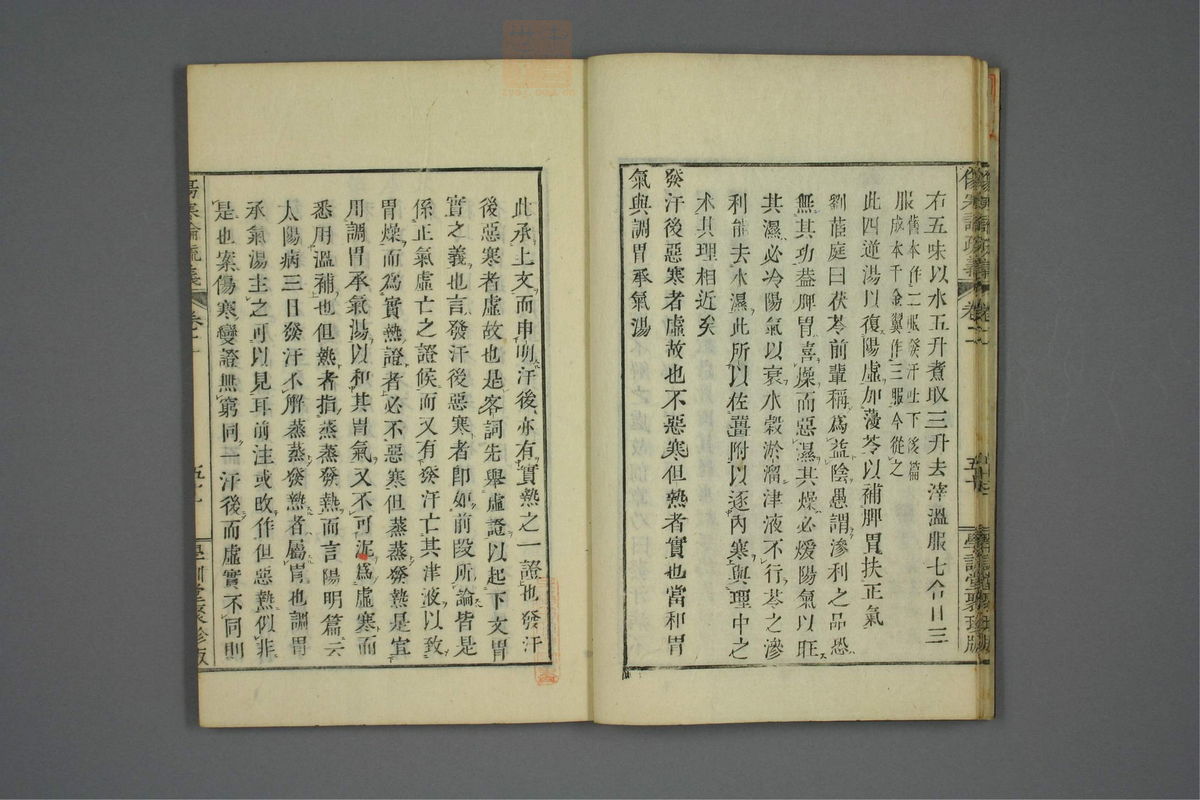 右五味以水五升煮取三升去滓溫服七合日三
服舊本作二服發汗吐下後篇
成本千金翼作三服今從之
此四逆湯以復陽虛加茯苓以補脾胃扶正氣
劉茝庭曰茯苓前輩稱爲益陰愚謂滲利之品恐
無其功葢脾胃喜燥而惡濕其燥必煖陽氣以旺
其濕必冷陽氣以衰水穀淤溜津液不行苓之滲
利能去水濕此所以佐薑附以逐內寒與理中之
朮其理相近矣
發汗後惡寒者虛故也不惡寒但熱者實也當和胃
氣與調胃承氣湯
此承上文而申明汗後亦有實熱之一證也發汗
後惡寒者虛故也是客詞先舉虛證以起下文胃
實之義也言發汗後惡寒者卽如前段所論皆是
係正氣虛亡之證候而又有發汗亡其津液以致
胃燥而爲實熱證者必不惡寒但蒸蒸發熱是宜
用調胃承氣湯以和其胃氣又不可泥爲虛寒而
悉用溫補也但熱者指蒸蒸發熱而言陽明篇云
太陽病三日發汗不解蒸蒸發熱者屬胃也調胃
承氣湯主之可以見耳前注或改作但惡熱似非
是也案傷寒變證無窮同一汗後而虛實不同則
傷寒論疏義
卷二
五十
學訓堂聚珍版